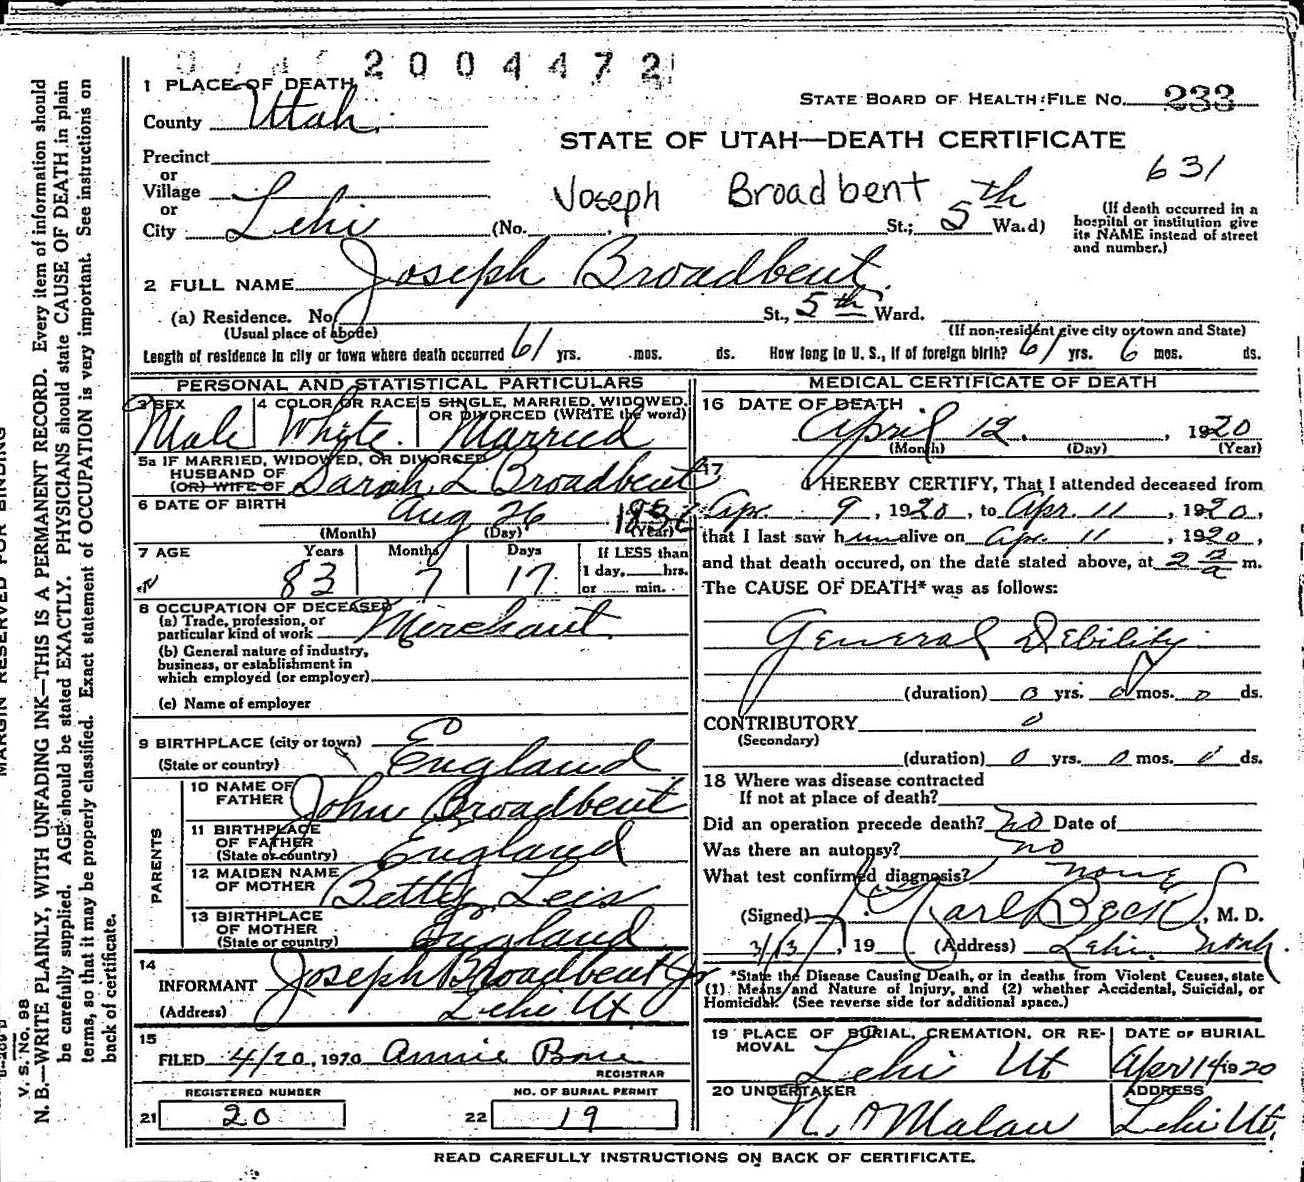 2004472
1 PLACE OF DEATH
STATE BOARD OF HEALTH FILE NO. 233
County Utah
STATE OF UTAH—DEATH CERTIFICATE
Precinct
631
or
Village
Joseph Broadbent
or
City Lehi (No. , St.; 5th Ward)
(If death occurred in a
hospital or institution give
its NAME instead of street
and number.)
2 FULL NAME Joseph Broadbent
(a) Residence. No. St., 5th Ward.
(Usual place of abode)
(If non-resident give city or town and State)
Length of residence in city or town where death occurred 61 yrs. mos. ds. How long in U. S., if of foreign birth? 61 yrs. 6 mos. ds.
PERSONAL AND STATISTICAL PARTICULARS
3 SEX
Male
4 COLOR OR RACE
White
5 SINGLE, MARRIED, WIDOWED,
OR DIVORCED (WRITE the word)
Married
5a IF MARRIED, WIDOWED, OR DIVORCED
HUSBAND OF
(OR) WIFE OF Sarah L Broadbent
6 DATE OF BIRTH Aug 26
(Month) (Day) (Year)
7 AGE Years Months Days
83 7 17
If LESS than
1 day, hrs.
or min.
8 OCCUPATION OF DECEASED
(a) Trade, profession, or
particular kind of work Merchant
(b) General nature of industry,
business, or establishment in
which employed (or employer)
(c) Name of employer
9 BIRTHPLACE (city or town)
(State or country) England
PARENTS
10 NAME OF
FATHER John Broadbent
11 BIRTHPLACE
OF FATHER
(State or country) England
12 MAIDEN NAME
OF MOTHER Betty Leis
13 BIRTHPLACE
OF MOTHER
(State or country) England
14
INFORMANT Joseph Broadbent Jr
(Address) Lehi Ut
15
FILED 4/20, 1920 Annie Bone
REGISTRAR
REGISTERED NUMBER
21 20
NO. OF BURIAL PERMIT
22 19
MEDICAL CERTIFICATE OF DEATH
16 DATE OF DEATH
April 12, 1920
(Month) (Day) (Year)
17
I HEREBY CERTIFY, That I attended deceased from
Apr. 9, 1920, to Apr. 11, 1920,
that I last saw him alive on Apr. 11, 1920,
and that death occured, on the date stated above, at 2 a m.
The CAUSE OF DEATH* was as follows:
General Debility
(duration) 0 yrs. 0 mos. 0 ds.
CONTRIBUTORY 0
(Secondary)
(duration) 0 yrs. 0 mos. 0 ds.
18 Where was disease contracted
If not at place of death?
Did an operation precede death? No Date of
Was there an autopsy? no
What test confirmed diagnosis? none
(Signed) Karl Beck, M. D.
3/13, 19 (Address) Lehi, Utah.
*State the Disease Causing Death, or in deaths from Violent Causes, state
(1) Means and Nature of Injury, and (2) whether Accidental, Suicidal, or
Homicidal. (See reverse side for additional space.)
19 PLACE OF BURIAL, CREMATION, OR RE-
MOVAL
Lehi Ut
DATE OF BURIAL
Apr 14 1920
20 UNDERTAKER
ADDRESS
Lehi Ut.
READ CAREFULLY INSTRUCTIONS ON BACK OF CERTIFICATE.
MARGIN RESERVED FOR BINDING
V. S. No. 98
N. B.—WRITE PLAINLY, WITH UNFADING INK—THIS IS A PERMANENT RECORD. Every item of information should
be carefully supplied. AGE should be stated EXACTLY. PHYSICIANS should state CAUSE OF DEATH in plain
terms, so that it may be properly classified. Exact statement of OCCUPATION is very important. See instructions on
back of certificate.